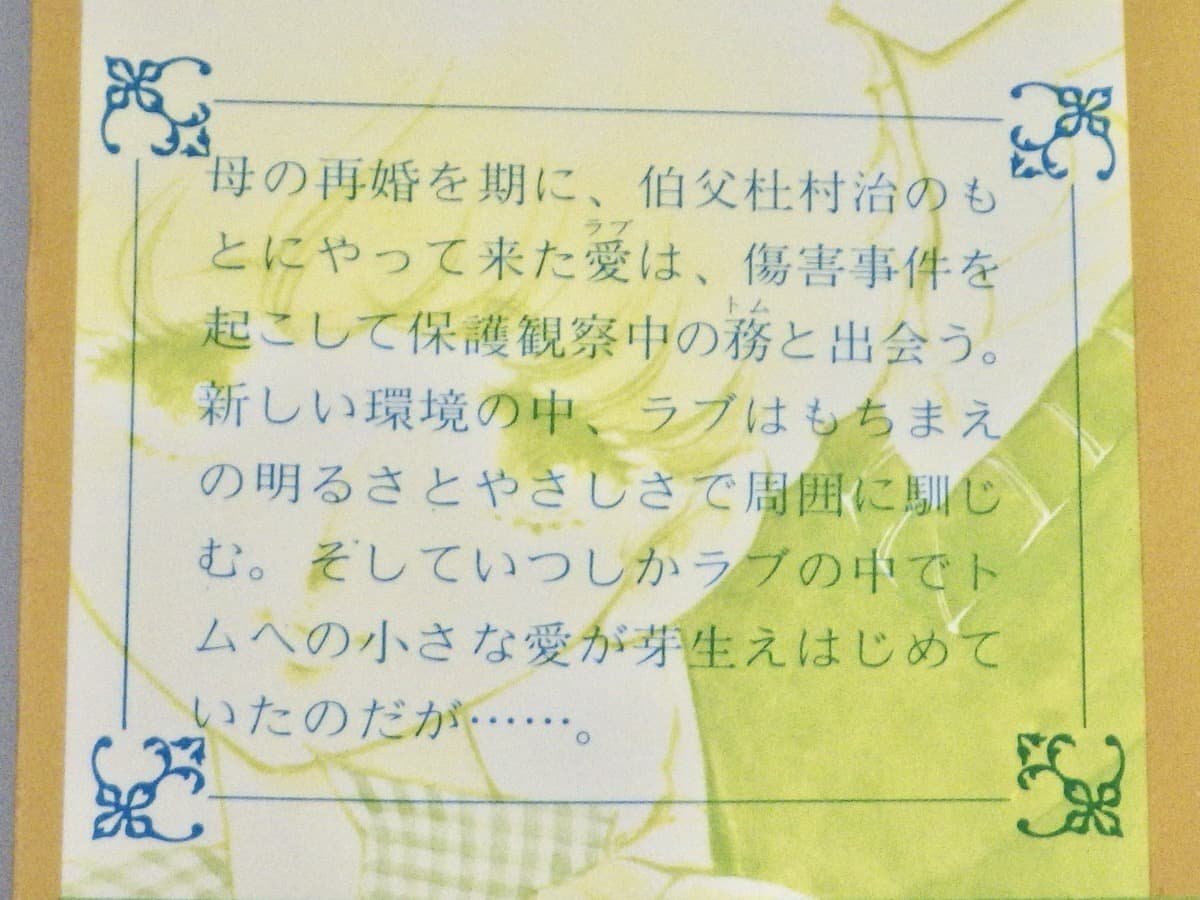 母の再婚を期に、伯父杜村治のも
とにやって来た愛は、傷害事件を
起こして保護観察中の務と出会う。
新しい環境の中、ラブはもちまえ
の明るさとやさしさで周囲に馴じ
む。そしていつしかラブの中でト
ムへの小さな愛が芽生えはじめて
いたのだが……。
ラブ
トム